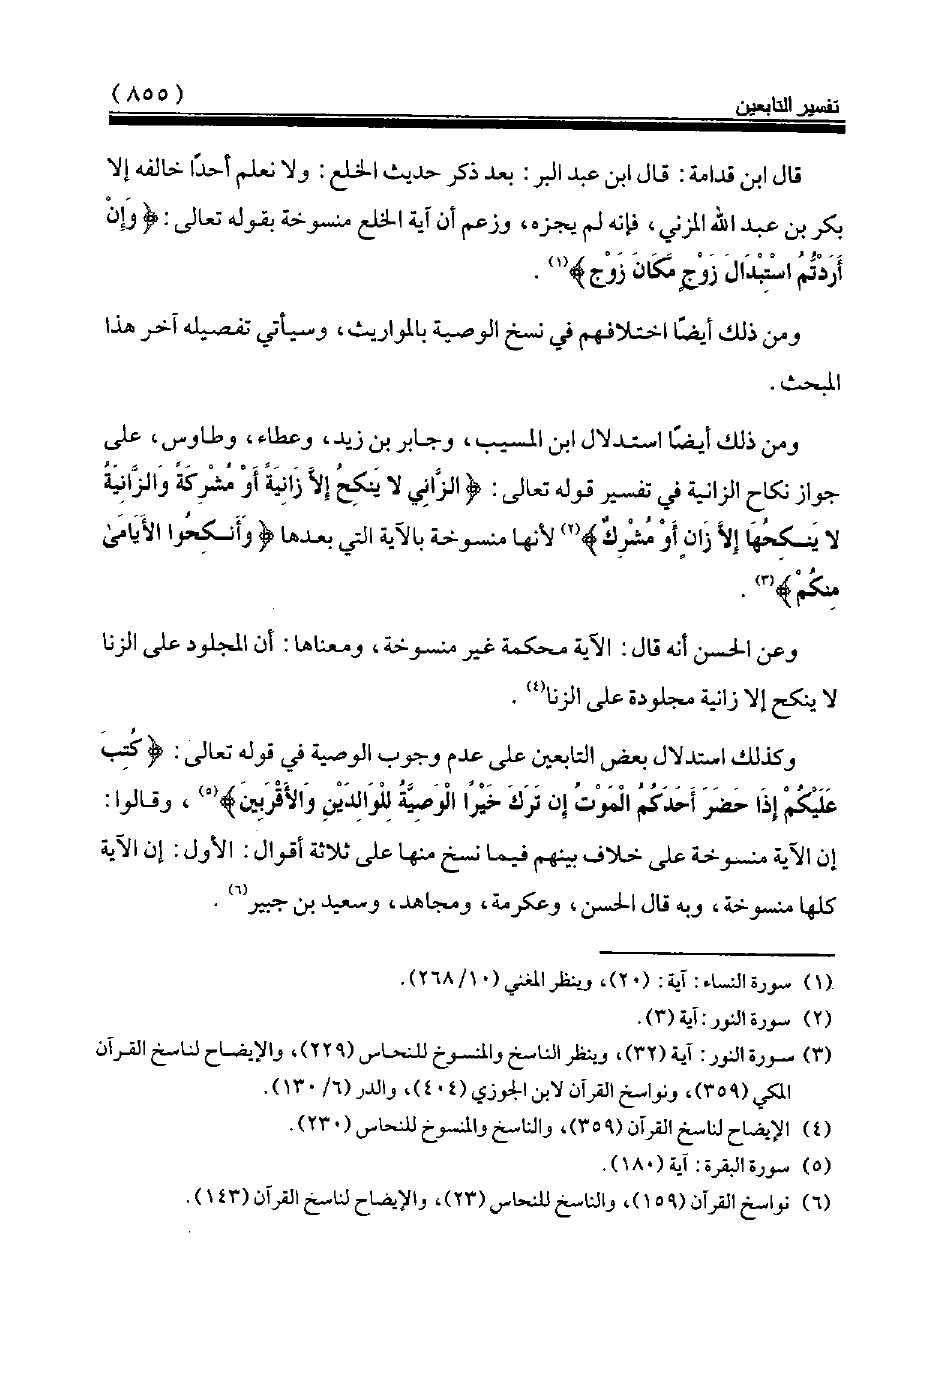 تفسير التابعين
(٨٥٥)
قال ابن قدامة: قال ابن عبد البر: بعد ذكر حديث الخلع: ولا نعلم أحدًا خالفه إلا
بكر بن عبد الله المزني، فإنه لم يجزه، وزعم أن آية الخلع منسوخة بقوله تعالى: ﴿وَإِنْ
أَرَدْتُمُ اسْتِبْدَالَ زَوْجٍ مَكَانَ زَوْجٍ﴾(١).
ومن ذلك أيضًا اختلافهم في نسخ الوصية بالمواريث، وسيأتي تفصيله آخر هذا
المبحث.
ومن ذلك أيضًا استدلال ابن المسيب، وجابر بن زيد، وعطاء، وطاوس، على
جواز نكاح الزانية في تفسير قوله تعالى: ﴿الزَّانِي لا يَنكِحُ إِلاَّ زَانِيَةً أَوْ مُشْرِكَةً وَالزَّانِيَةُ
لا يَنكِحُهَا إِلاَّ زَانٍ أَوْ مُشْرِكٌ﴾(٢) لأنها منسوخة بالآية التي بعدها ﴿وَأَنكِحُوا الأَيَامَىٰ
مِنكُمْ﴾(٣).
وعن الحسن أنه قال: الآية محكمة غير منسوخة، ومعناها: أن المجلود على الزنا
لا ينكح إلا زانية مجلودة على الزنا(٤).
وكذلك استدلال بعض التابعين على عدم وجوب الوصية في قوله تعالى: ﴿كُتِبَ
عَلَيْكُمْ إِذَا حَضَرَ أَحَدَكُمُ الْمَوْتُ إِن تَرَكَ خَيْرًا الْوَصِيَّةُ لِلْوَالِدَيْنِ وَالأَقْرَبِينَ﴾(٥)، وقالوا:
إن الآية منسوخة على خلاف بينهم فيما نسخ منها على ثلاثة أقوال: الأول: إن الآية
كلها منسوخة، وبه قال الحسن، وعكرمة، ومجاهد، وسعيد بن جبير(٦).
(١) سورة النساء: آية: (٢٠)، وينظر المغني (١٠/ ٢٦٨).
(٢) سورة النور: آية (٣).
(٣) سورة النور: آية (٣٢)، وينظر الناسخ والمنسوخ للنحاس (٢٢٩)، والإيضاح لناسخ القرآن
المكي (٣٥٩)، ونواسخ القرآن لابن الجوزي (٤٠٤)، والدر (٦/ ١٣٠).
(٤) الإيضاح لناسخ القرآن (٣٥٩)، والناسخ والمنسوخ للنحاس (٢٣٠).
(٥) سورة البقرة: آية (١٨٠).
(٦) نواسخ القرآن (١٥٩)، والناسخ للنحاس (٢٣)، والإيضاح لناسخ القرآن (١٤٣).